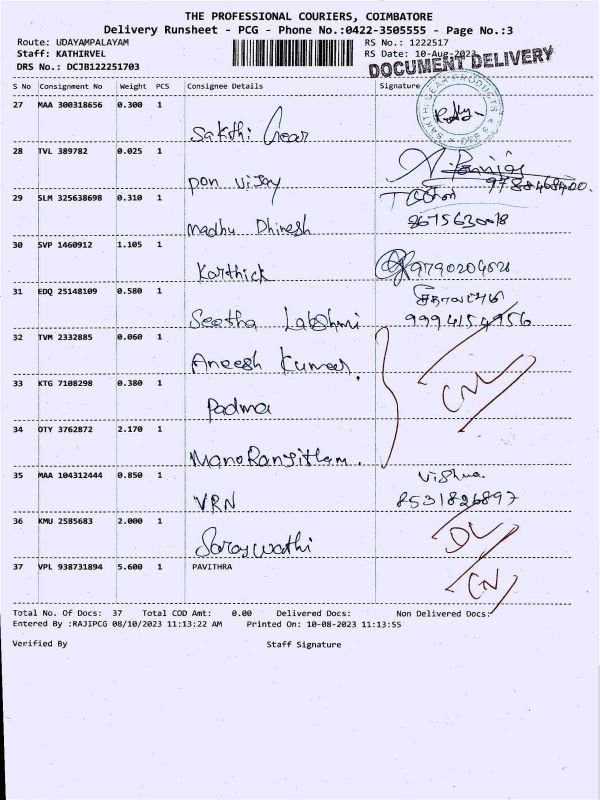 THE PROFESSIONAL COURIERS, COIMBATORE
Delivery Runsheet - PCG - Phone No.:0422-3505555 - Page No.:3
Route: UDAYAMPALAYAM RS No.: 1222517
Staff: KATHIRVEL RS Date: 10-Aug-2023
DRS No.: DCJB122251703 DOCUMENT DELIVERY
S No Consignment No Weight PCS Consignee Details Signature
27 MAA 300318656 0.300 1
SAKTHI GEAR PRODUCTS
Sakthi Gear
28 TVL 389782 0.025 1
Pon Vijay 9788468400.
29 SLM 325638698 0.310 1
Madhu Dhinesh 8675630018
30 SVP 1460912 1.105 1
Karthick 9790204628
31 EDQ 25148109 0.580 1
Seetha Lakshmi 9994154956
32 TVM 2332885 0.060 1
Aneesh Kumar.
33 KTG 7108298 0.380 1
Padma
34 OTY 3762872 2.170 1
ManoRanjitham.
35 MAA 104312444 0.850 1 Vishwa
VRN 8531826897
36 KMU 2585683 2.000 1
Saraswathi DL
37 VPL 938731894 5.600 1 PAVITHRA
CN
Total No. Of Docs: 37 Total COD Amt: 0.00 Delivered Docs: Non Delivered Docs:
Entered By :RAJIPCG 08/10/2023 11:13:22 AM Printed On: 10-08-2023 11:13:55
Verified By Staff Signature